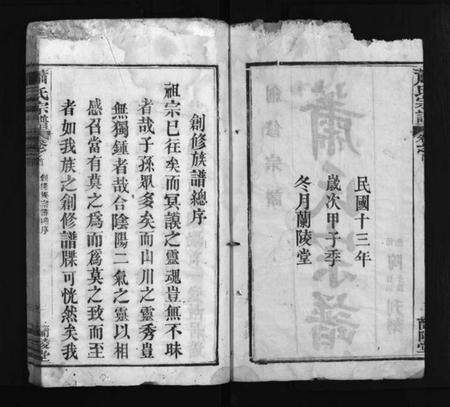 民國十三年
歲次甲子季
冬月蘭陵堂
蕭氏宗譜
創修族譜總序
祖宗已往矣而冥漠之靈魂豈無不昧
者哉子孫眾多矣而山川之靈秀豈
無獨鍾者哉合陰陽二氣之靈以相
感召當有莫之為而為莫之致而至
者如我族之創修譜牒可恍然矣我
蕭氏宗譜 卷首
創修族譜總序
蘭陵堂